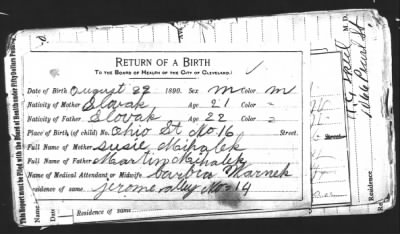 RETURN OF A BIRTH
TO THE BOARD OF HEALTH OF THE CITY OF CLEVELAND.
Date of Birth August 22 1890. Sex m Color m
Nativity of Mother Slovak Age 21 Color "
Nativity of Father Slovak Age 22 Color "
Place of Birth (of child) No. Ohio St No. 16 Street.
Full Name of Mother Susie Mihalek
Full Name of Father Martin Mihalek
Name of Medical Attendant or Midwife barbra Marnek
Residence of same jerome alley No 14
This Report must be Filed with the Board of Health under Fifty Dollars
Name
Date
Residence of same
M.D.
Street